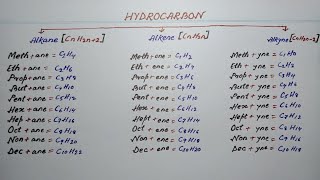 HYDROCARBON
Alkane [CnH2n+2]
Meth + ane = C1H4
Eth + ane = C2H6
Prop + ane = C3H8
But + ane = C4H10
Pent + ane = C5H12
Hex + ane = C6H14
Hept + ane = C7H16
Oct + ane = C8H18
Non + ane = C9H20
Dec + ane = C10H22
Alkene [CnH2n]
Meth + ene = C1H2
Eth + ene = C2H4
Prop + ene = C3H6
But + ene = C4H8
Pent + ene = C5H10
Hex + ene = C6H12
Hept + ene = C7H14
Oct + ene = C8H16
Non + ene = C9H18
Dec + ene = C10H20
Alkyne [CnH2n-2]
Meth + yne =
Eth + yne = C2H2
Prop + yne = C3H4
But + yne = C4H6
Pent + yne = C5H8
Hex + yne = C6H10
Hept + yne = C7H12
Oct + yne = C8H14
Non + yne = C9H16
Dec + yne = C10H18